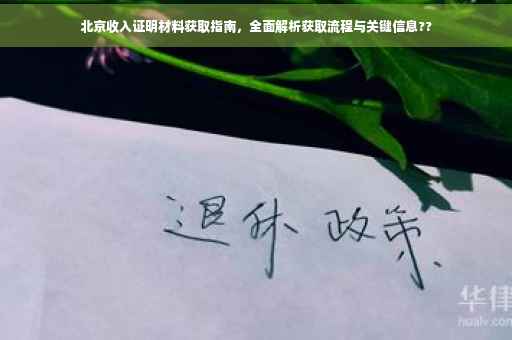 北京收入证明材料获取指南，全面解析获取流程与关键信息??
退休政策
华律
hualv.com